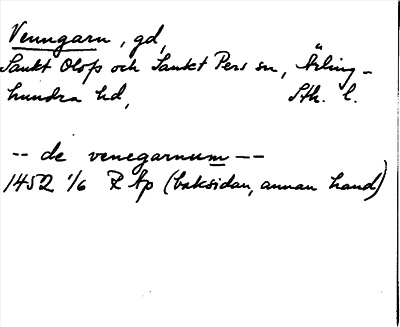 Venngarn, gd,
Sankt Olofs och Sankt Pers sn, Ärling-
hundra hd, Sth. l.
-- de venegarnum --
1452 1/6 Z Ap (baksidan, annan hand)